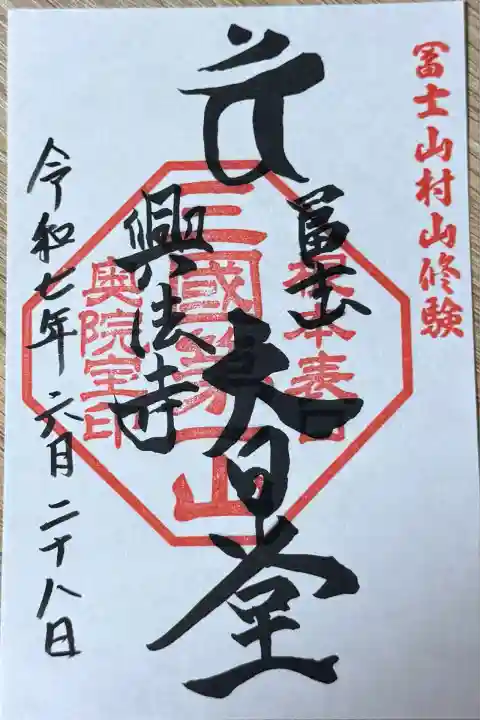 冨士山村山修験
冨士山
大日堂
興法寺
令和七年 六月 二十八日
根本表口
三國第一山
奥院宝印